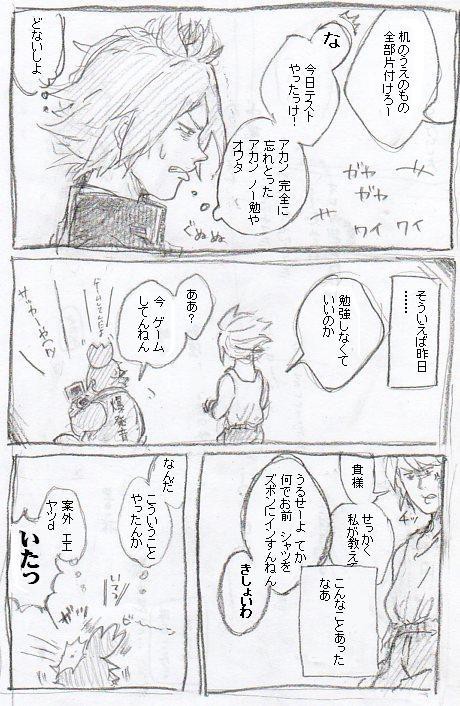 机のうえのもの
全部片付けろー
な
今日テスト
やったっけ！
アカン 完全に
忘れとった
アカン ノー勉や
オワタ
どないしよ
ガヤ
ガヤ
ワイ
ワイ
ぐぬぬ
そういえば昨日
……
勉強しなくて
いいのか
ああ？
今 ゲーム
してんねん
貴様
せっかく
私が教えて
チッ
うるせーよ てか
何でお前 シャツを
ズボンにインすんねん
きしょいわ
こんなことあった
なあ
なんだ
こういうこと
やったんか
案外 エエ
ヤツd
いたっ